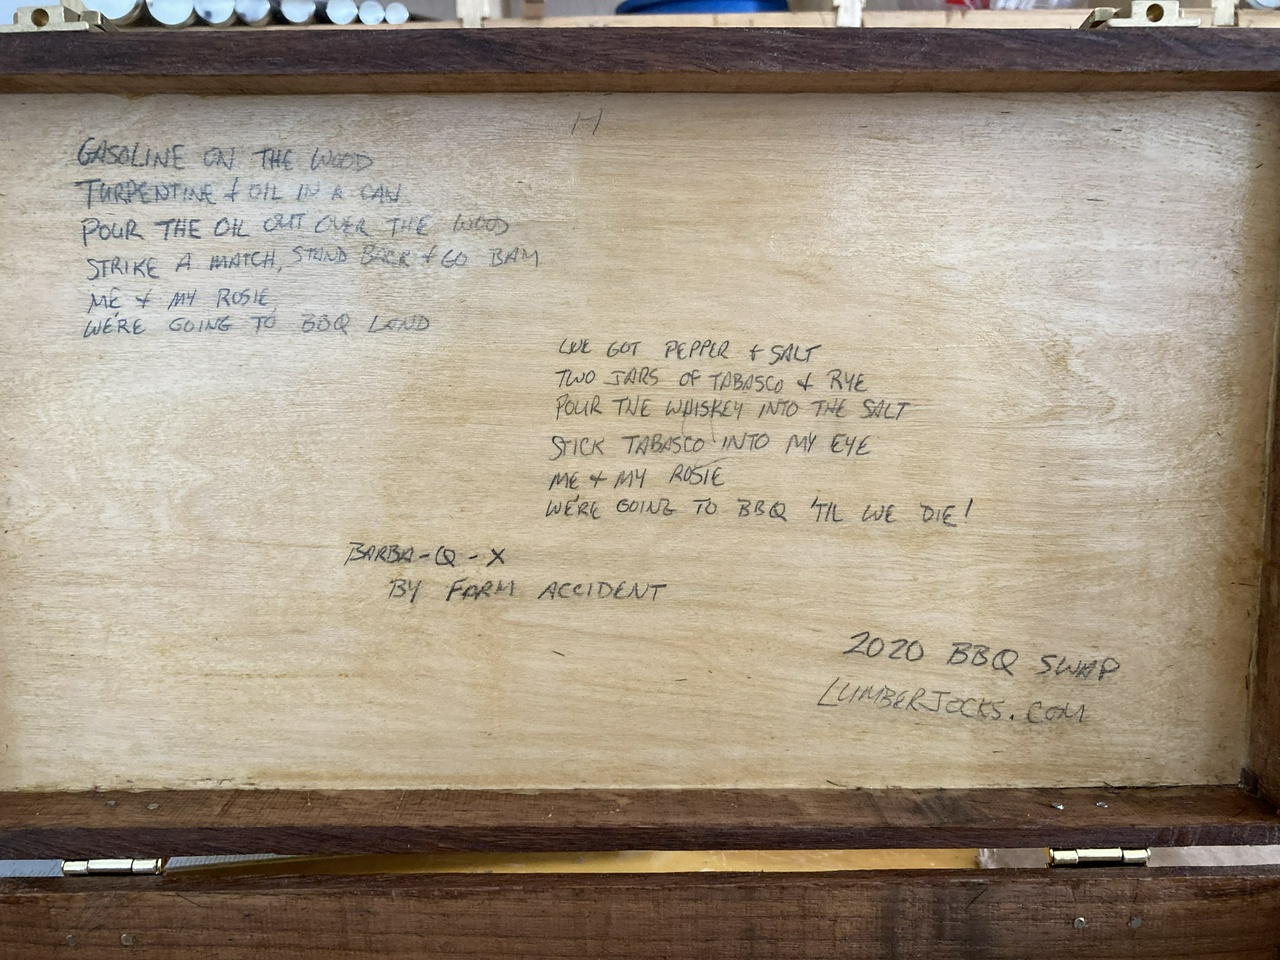 H
GASOLINE ON THE WOOD
TURPENTINE & OIL IN A CAN
POUR THE OIL OUT OVER THE WOOD
STRIKE A MATCH, STAND BACK & GO BAM
ME & MY ROSIE
WE'RE GOING TO BBQ LAND
WE GOT PEPPER & SALT
TWO JARS OF TABASCO & RYE
POUR THE WHISKEY INTO THE SALT
STICK TABASCO INTO MY EYE
ME & MY ROSIE
WE'RE GOING TO BBQ 'TIL WE DIE!
BARBA-Q-X
BY FARM ACCIDENT
2020 BBQ SWAP
LUMBERJOCKS.COM